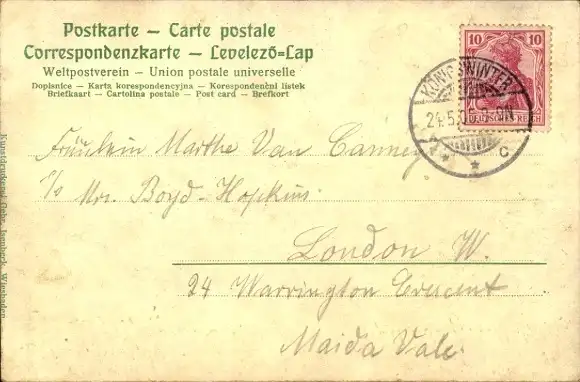 Postkarte – Carte postale
Correspondenzkarte – Levelezö=Lap
Weltpostverein – Union postale universelle
Dopisnice – Karta korespondencyjna – Korespondenční lístek
Briefkaart – Cartolina postale – Post card – Brefkort
10 10
DEUTSCHES REICH
KÖNIGSWINTER
C
Fräulein Marthe Van Canney
c/o Mrs. Boyd-Hopkins
London W.
24 Warrington Crescent
Maida Vale.
Wiesbaden